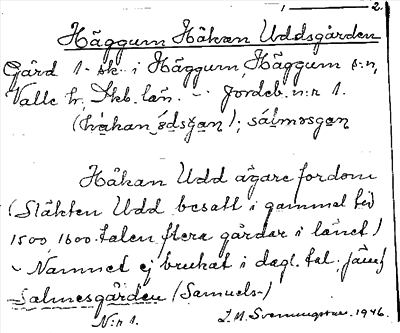 1 — 2.
Häggum Håkan Uddsgården
Gård 1 sk. i Häggum, Häggum s:n,
Valle hd, Skb. län. – Jordeb. n:r 1.
(håkan ödsgan); sálmosgan
Håkan Udd ägare fordom
(Släkten Udd besatt i gammal tid
1500, 1600-talen flera gårdar i länet)
Namnet ej brukat i dagl. tal. jämf
Salmesgården (Samuels-)
N:r 1. 1946.